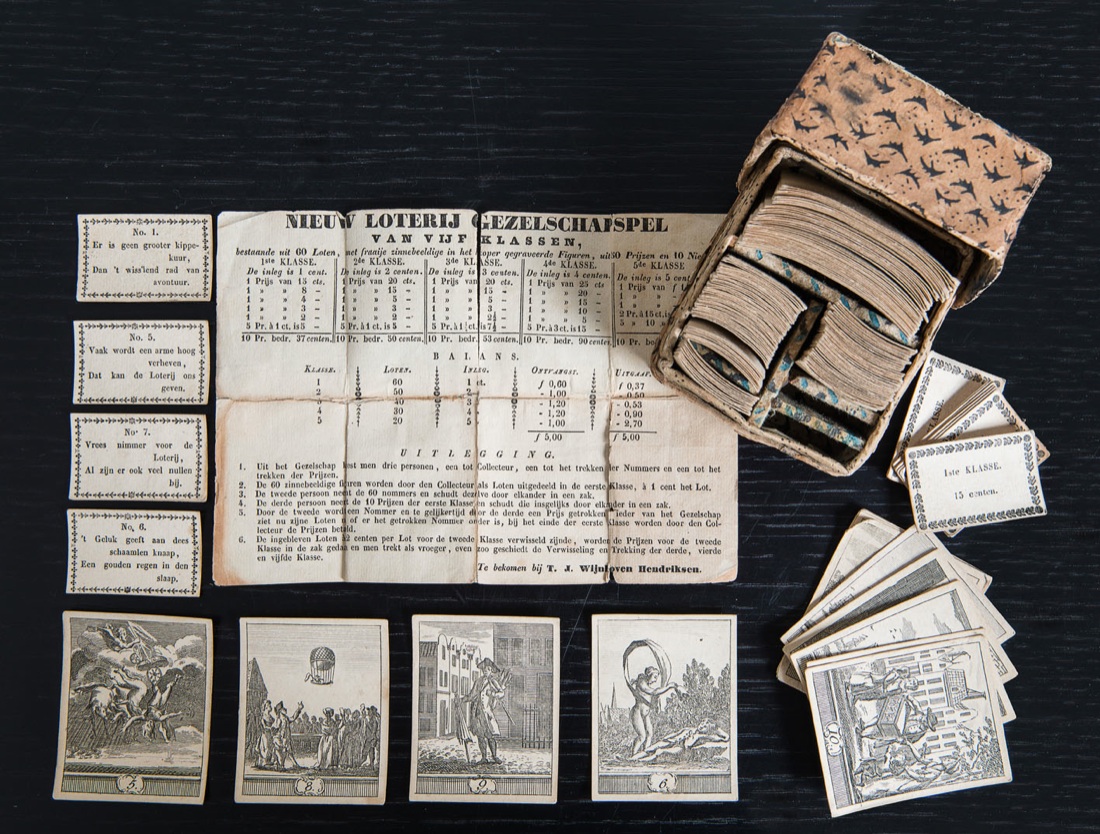 No. 1.
Er is geen grooter kippe-
kuur,
Dan 't wiss'lend rad van
avontuur.
No. 5.
Vaak wordt een arme hoog
verheven,
Dat kan de Loterij ons
geven.
No. 7.
Vrees nimmer voor de
Loterij,
Al zijn er ook veel nullen
bij.
No. 6.
't Geluk geeft aan dees
schaamlen knaap,
Een gouden regen in den
slaap.
NIEUW LOTERIJ GEZELSCHAPSPEL
VAN VIJF KLASSEN,
bestaande uit 60 Loten, met fraaije zinnebeeldige in het koper gegraveerde Figuren, uit 50 Prijzen en 10
1ste KLASSE. 2de KLASSE. 3de KLASSE. 4de KLASSE. 5de KLASSE
De inleg is 1 cent. De inleg is 2 centen. De inleg is 3 centen. De inleg is 4 centen. De inleg is 5 cent
1 Prijs van 15 cts. 1 Prijs van 20 cts. 1 Prijs van 20 cts. 1 Prijs van 25 cts 1 Prijs van
1 » » 8 - 1 » » 15 - 1 » » 15 - 1 » » 20 - 1 » »
1 » » 4 - 1 » » 5 - 1 » » 5 - 1 » » 15 - 1 » »
1 » » 3 - 1 » » 3 - 1 » » 3 - 1 » » 10 - 2 Pr. à 15 ct.
1 » » 2 - 1 » » 2 - 1 » » 2½ - 1 » » 5 -
5 Pr. à 1 ct. is 5 - 5 Pr. à 1 ct. is 5 - 5 Pr. à 1½ ct. is 7½ - 5 Pr. à 3 ct. is 15 5 » 10
10 Pr. bedr. 37 centen. 10 Pr. bedr. 50 centen. 10 Pr. bedr. 53 centen. 10 Pr. bedr. 90 centen. 10 Pr. bedr.
BALANS.
KLASSE. LOTEN. INLEG. ONTVANGST. UITGAAF.
1 60 1 ct. ƒ 0,60 ƒ 0,37
2 50 2 - 1,00 - 0,50
3 40 3 - 1,20 - 0,53
4 30 4 - 1,20 - 0,90
5 20 5 - 1,00 - 2,70
ƒ 5,00 ƒ 5,00
UITLEGGING.
1. Uit het Gezelschap kiest men drie personen, een tot Collecteur, een tot het trekken der Nummers en een tot het
trekken der Prijzen.
2. De 60 zinnebeeldige figuren worden door den Collecteur als Loten uitgedeeld in de eerste Klasse, à 1 cent het Lot.
3. De tweede persoon neemt de 60 nommers en schudt dezelve door elkander in een zak.
4. De derde persoon neemt de 10 Prijzen der eerste Klasse en schudt die insgelijks door elkander in een zak.
5. Door de tweede wordt een Nommer en te gelijkertijd door de derde een Prijs getrokken ieder van het Gezelschap
ziet nu zijne Loten na of er het getrokken Nommer onder is, bij het einde der eerste Klasse worden door den Col-
lecteur de Prijzen betaald.
6. De ingebleven Loten à 2 centen per Lot voor de tweede Klasse verwisseld zijnde, worden de Prijzen voor de tweede
Klasse in de zak gedaan en men trekt als vroeger, even zoo geschiedt de Verwisseling en Trekking der derde, vierde
en vijfde Klasse.
Te bekomen bij T. J. Wijnhoven Hendriksen.
KLASSE.
1ste KLASSE.
15 centen.
5
8
9
6